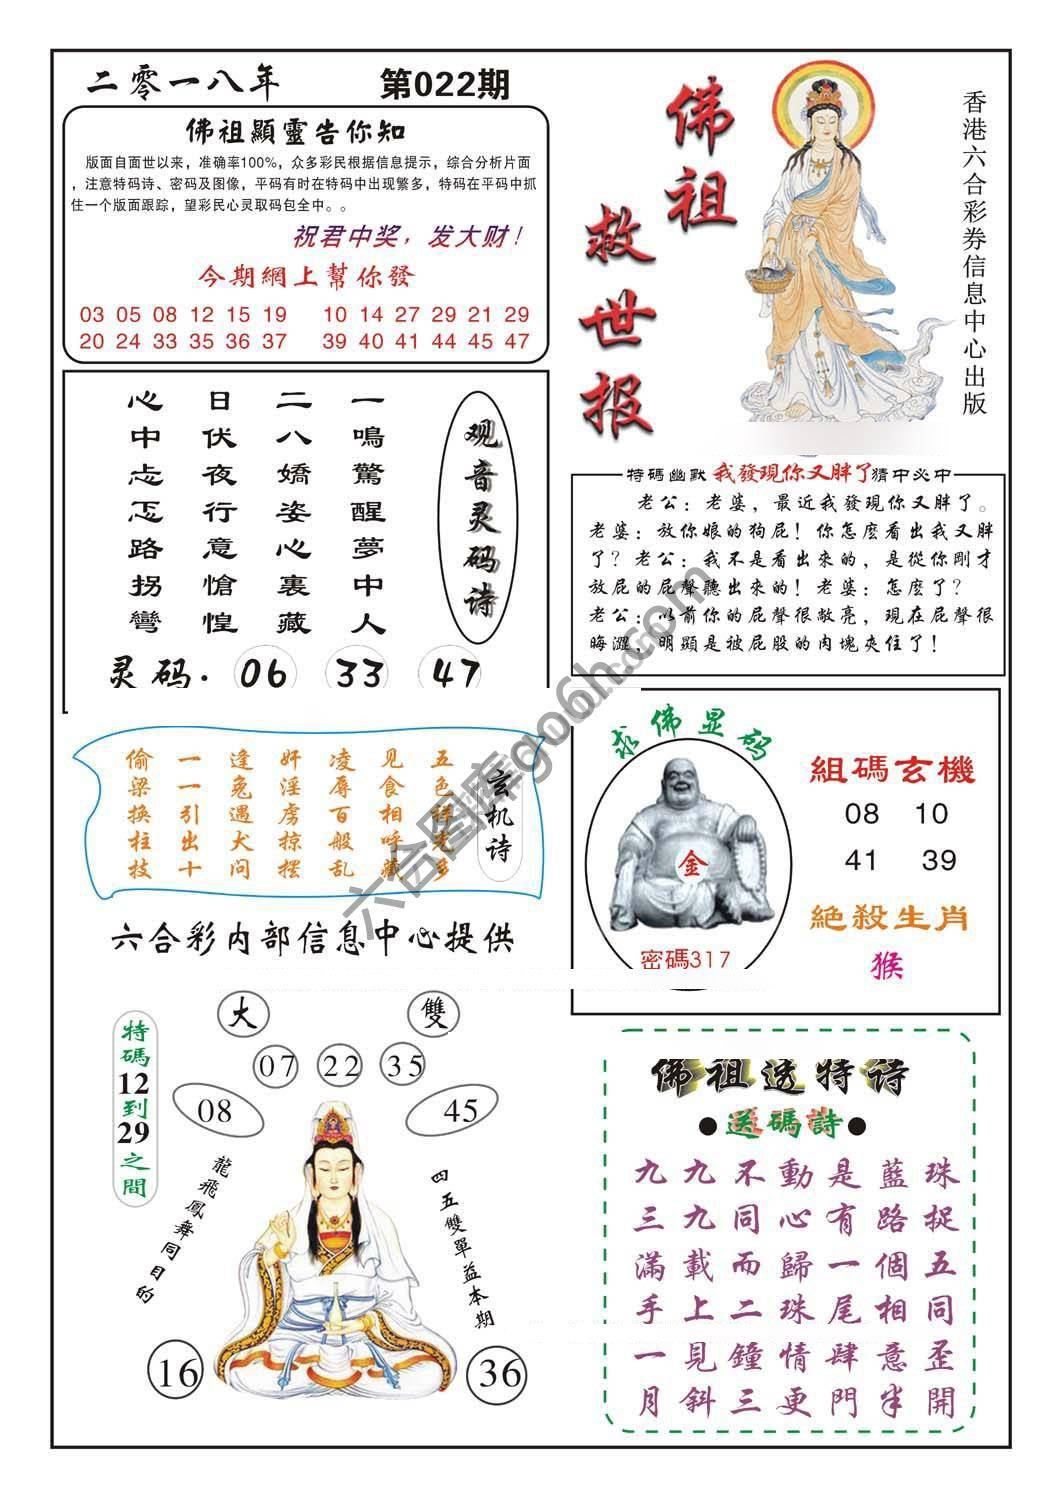 二零一八年 第022期
佛祖顯靈告你知
版面自面世以来，准确率100%，众多彩民根据信息提示，综合分析片面
，注意特码诗、密码及图像，平码有时在特码中出现繁多，特码在平码中抓
住一个版面跟踪，望彩民心灵取码包全中。。
祝君中奖，发大财！
今期網上幫你發
03 05 08 12 15 19 10 14 27 29 21 29
20 24 33 35 36 37 39 40 41 44 45 47
佛祖
救世报
香港六合彩券信息中心出版
观音灵码诗
一鳴驚醒夢中人
二八嬌姿心裏藏
日伏夜行意愴惶
心中忐忑路拐彎
灵码. 06 33 47
特碼幽默 我發現你又胖了 猜中必中
老公：老婆，最近我發現你又胖了。
老婆：放你娘的狗屁！你怎麽看出我又胖
了？老公：我不是看出來的，是從你剛才
放屁的屁聲聽出來的！老婆：怎麽了？
老公：以前你的屁聲很敞亮，現在屁聲很
晦澀，明顯是被屁股的肉塊夾住了！
玄机诗
五色祥光多
见食相呼藏
凌辱百般乱
奸淫虏掠摆
逢兔遇犬问
一一引出十
偷梁换柱技
六合彩内部信息中心提供
求佛显码
金
密碼317
組碼玄機
08 10
41 39
絶殺生肖
猴
大 雙
07 22 35
08 45
特碼12到29之間
龍飛鳳舞同目的
四五雙單益本期
16 36
佛祖透特诗
●送碼詩●
九九不動是藍珠
三九同心有路捉
滿載而歸一個五
手上二珠尾相同
一見鐘情肆意歪
月斜三更門半開
六合图库go6h.com